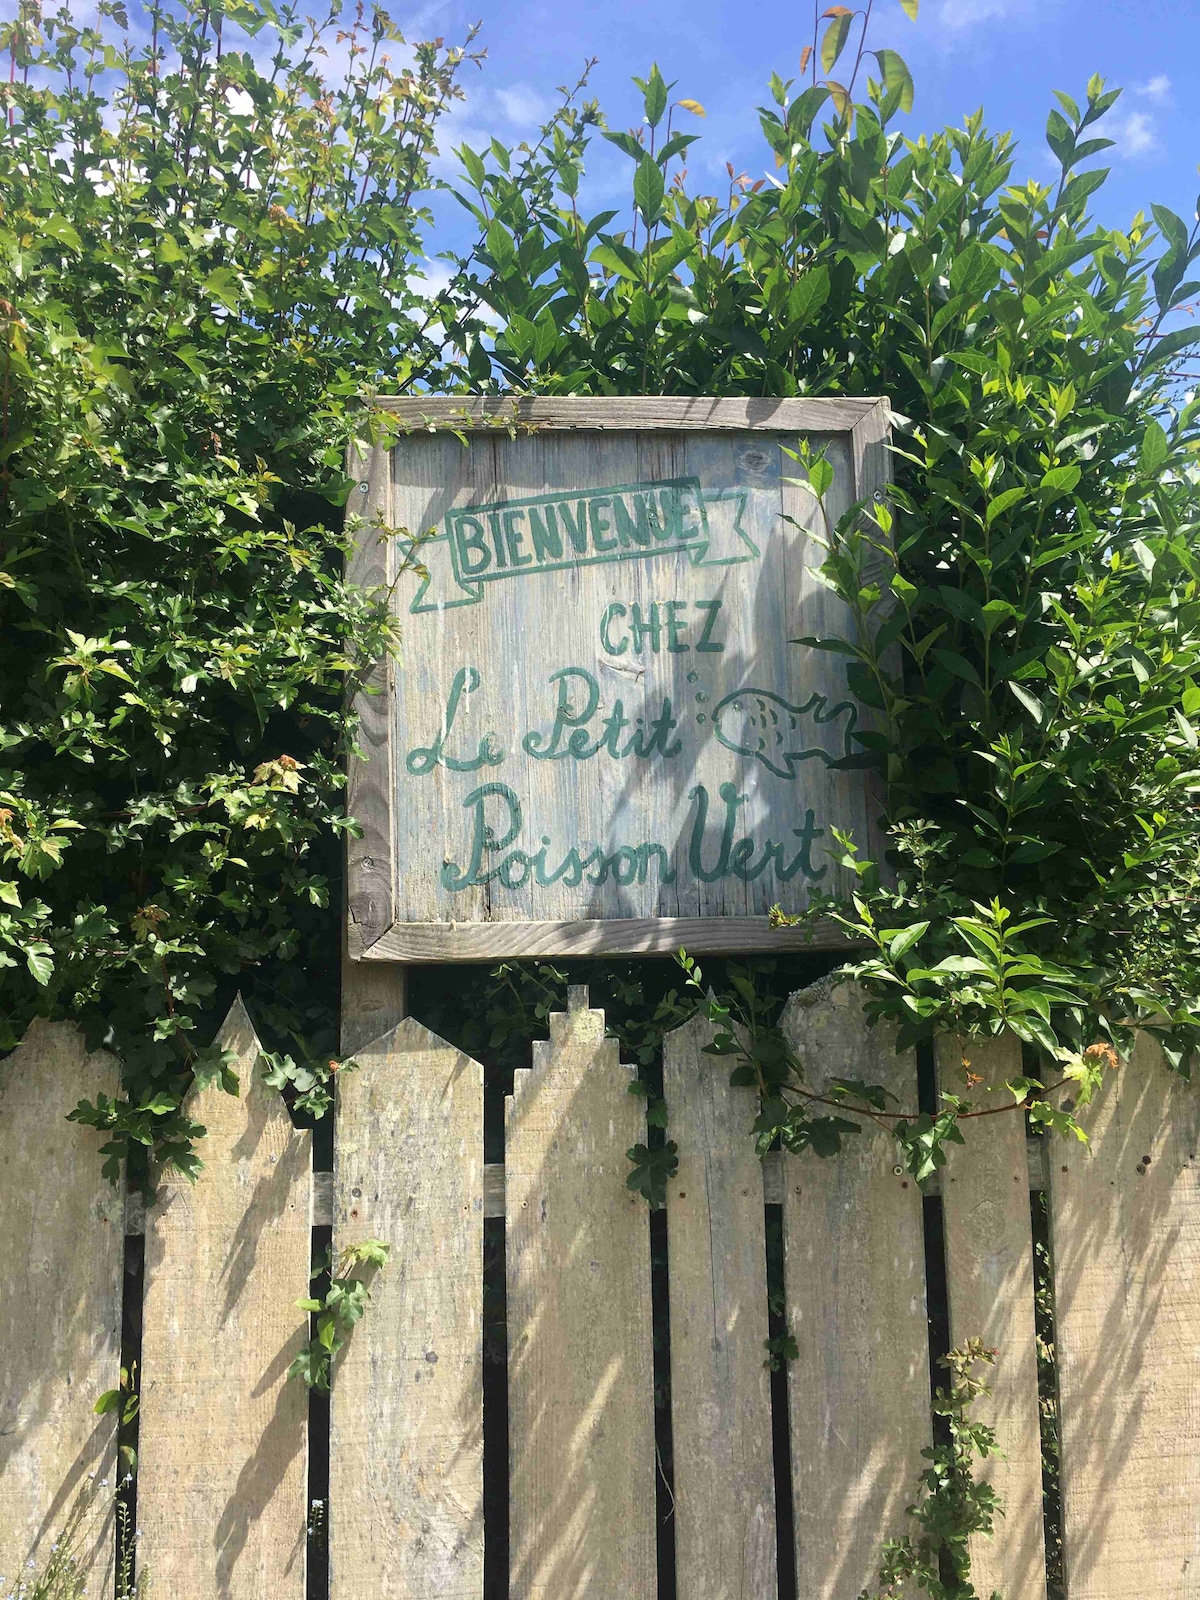 BIENVENUE
CHEZ
Le Petit
Poisson Vert